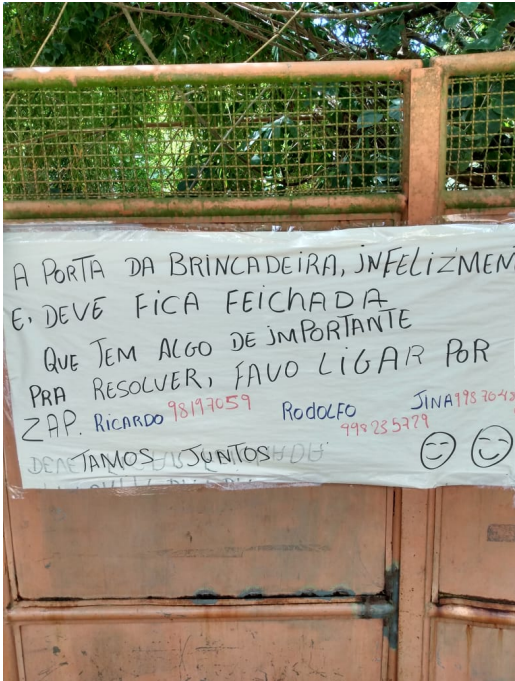 A PORTA DA BRINCADEIRA, INFELIZMEN
E, DEVE FICA FEICHADA
QUE TEM ALGO DE IMPORTANTE
PRA RESOLVER, FAVO LIGAR POR
ZAP. RICARDO 98197059 RODOLFO 998235779 JINA
TAMOS JUNTOS